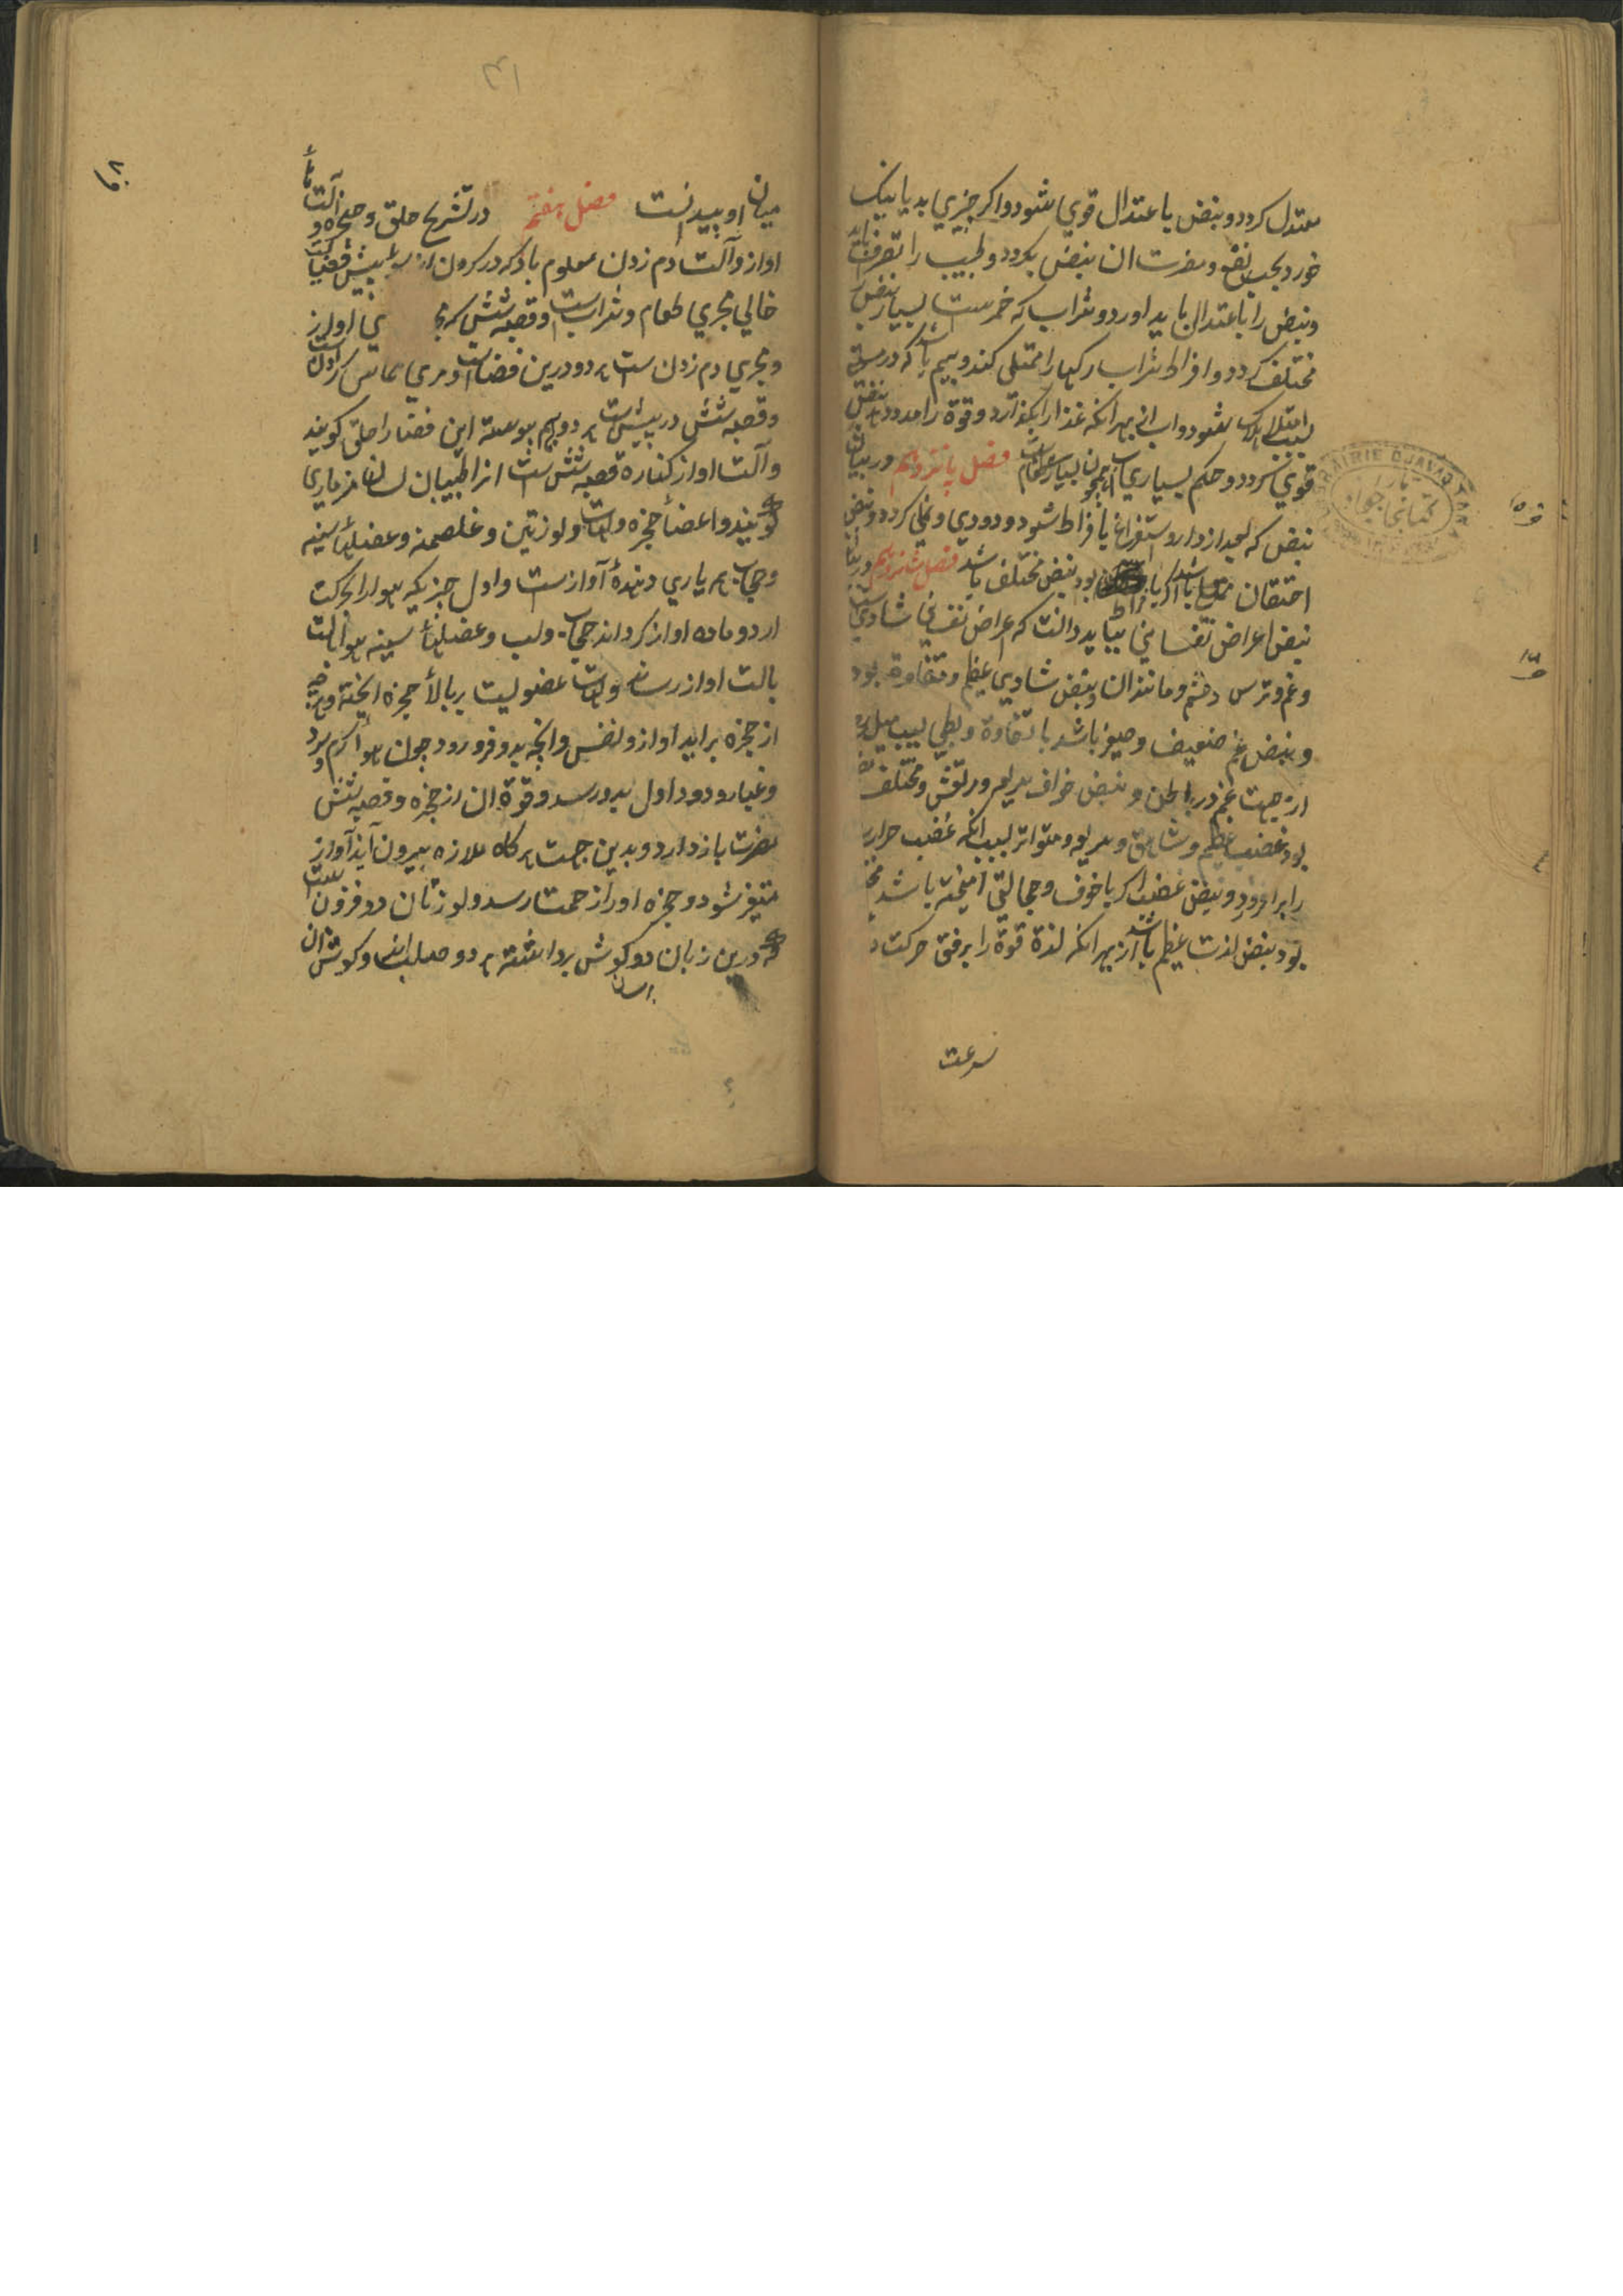 معتدل کردد و نبض با عتدال قوي شود و اکر چیزي بد یا نیک
خورد بحسب نفع و مضرت ان نبض بکردد و طبیب را تصرف باید
و نبض را با عتدال باید اورد و شراب که خمرست بسیار نبض را
مختلف کردد و افراط شراب رکها را ممتلی کند و بیم باشد که در مستی
بسبب امتلا هلاک شود و اب از بهر انکه غذا را بکذارد و قوة را مدد دهد نبض
قوي کردد و حکم بسیاري اب همچون بسیار طعام است فصل پانزدهم در بیان
نبض که بعد از دارو و استفراغ با فراط شود و دودي و نملي کردد و نبض
احتقان ممتلي باشد اکر با فراط بود نبض مختلف باشد فصل شانزدهم در بیان
نبض اعراض نفساني بباید دانست که اعراض نفساني شادي است
و غم و ترس و خشم و مانند ان و نبض شادي عظیم و متفاوت بود
و نبض غم ضعیف و صغیر باشد با تفاوة و بطي بسبب میل
از جهت غم در باطن و نبض خوف سریع و مرتعش و مختلف
بود غضب عظیم و شاهق و سریع و متواتر بسبب انکه غضب حرارت
را بر افروزد و نبض غضب اکر با خوف و خجالتي امیخته باشد
بود نبض لذت عظیم باشد از بهر انکه لذة قوة را برفق حرکت د
سرعت
فه ١٥
فه ١٦
كتابخانه جوا
LIBRAIRIE DJAVAD
٣١
میان او پیدا نیست فصل هفتم در تشریح حلق و حنجره و آلتهاء
اواز و آلت دم زدن معلوم باد که در کردن از سؤ پیش فضائیست
خالي مجري طعام و شراب است و قصبه شش که مجري اواز
و مجري دم زدن ست هر دو درین فضاست و مري مماس کردن است
و قصبه شش در پیش ست هر دو بهم پیوسته این فضا را حلق کویند
و آلت اواز کناره قصبه شش ست انرا طبیبان لسان مزماري
کویند و اعضاء حنجره و لهات و لوزتین و غلصمه و عضلهاء سینه
و حجاب هم یاري دهندهٔ آوازست و اول چیزیکه هوا را بحرکت
ارد و ماده اواز کرداند حجاب و لب و عضلهاء سینه هوا بالت
بالت اواز رساند و لهات عضویست بر بالاء حنجره اویخته و هرچه
از حنجره براید اواز و نفس و انچه بدو فرو رود چون هوا کرم و سرد
و غبار و دود اول بدو رسد و قوة ان از حنجره و قصبه شش
مضرت باز دارد و بدین جهت هرکاه ملازه بیرون آید آواز
متغیر شود و حنجره او را زحمت رسد و لوزتان دو فزون است
که در بن زبان دو کوش برداشته هر دو صلب اند و کوشت ان